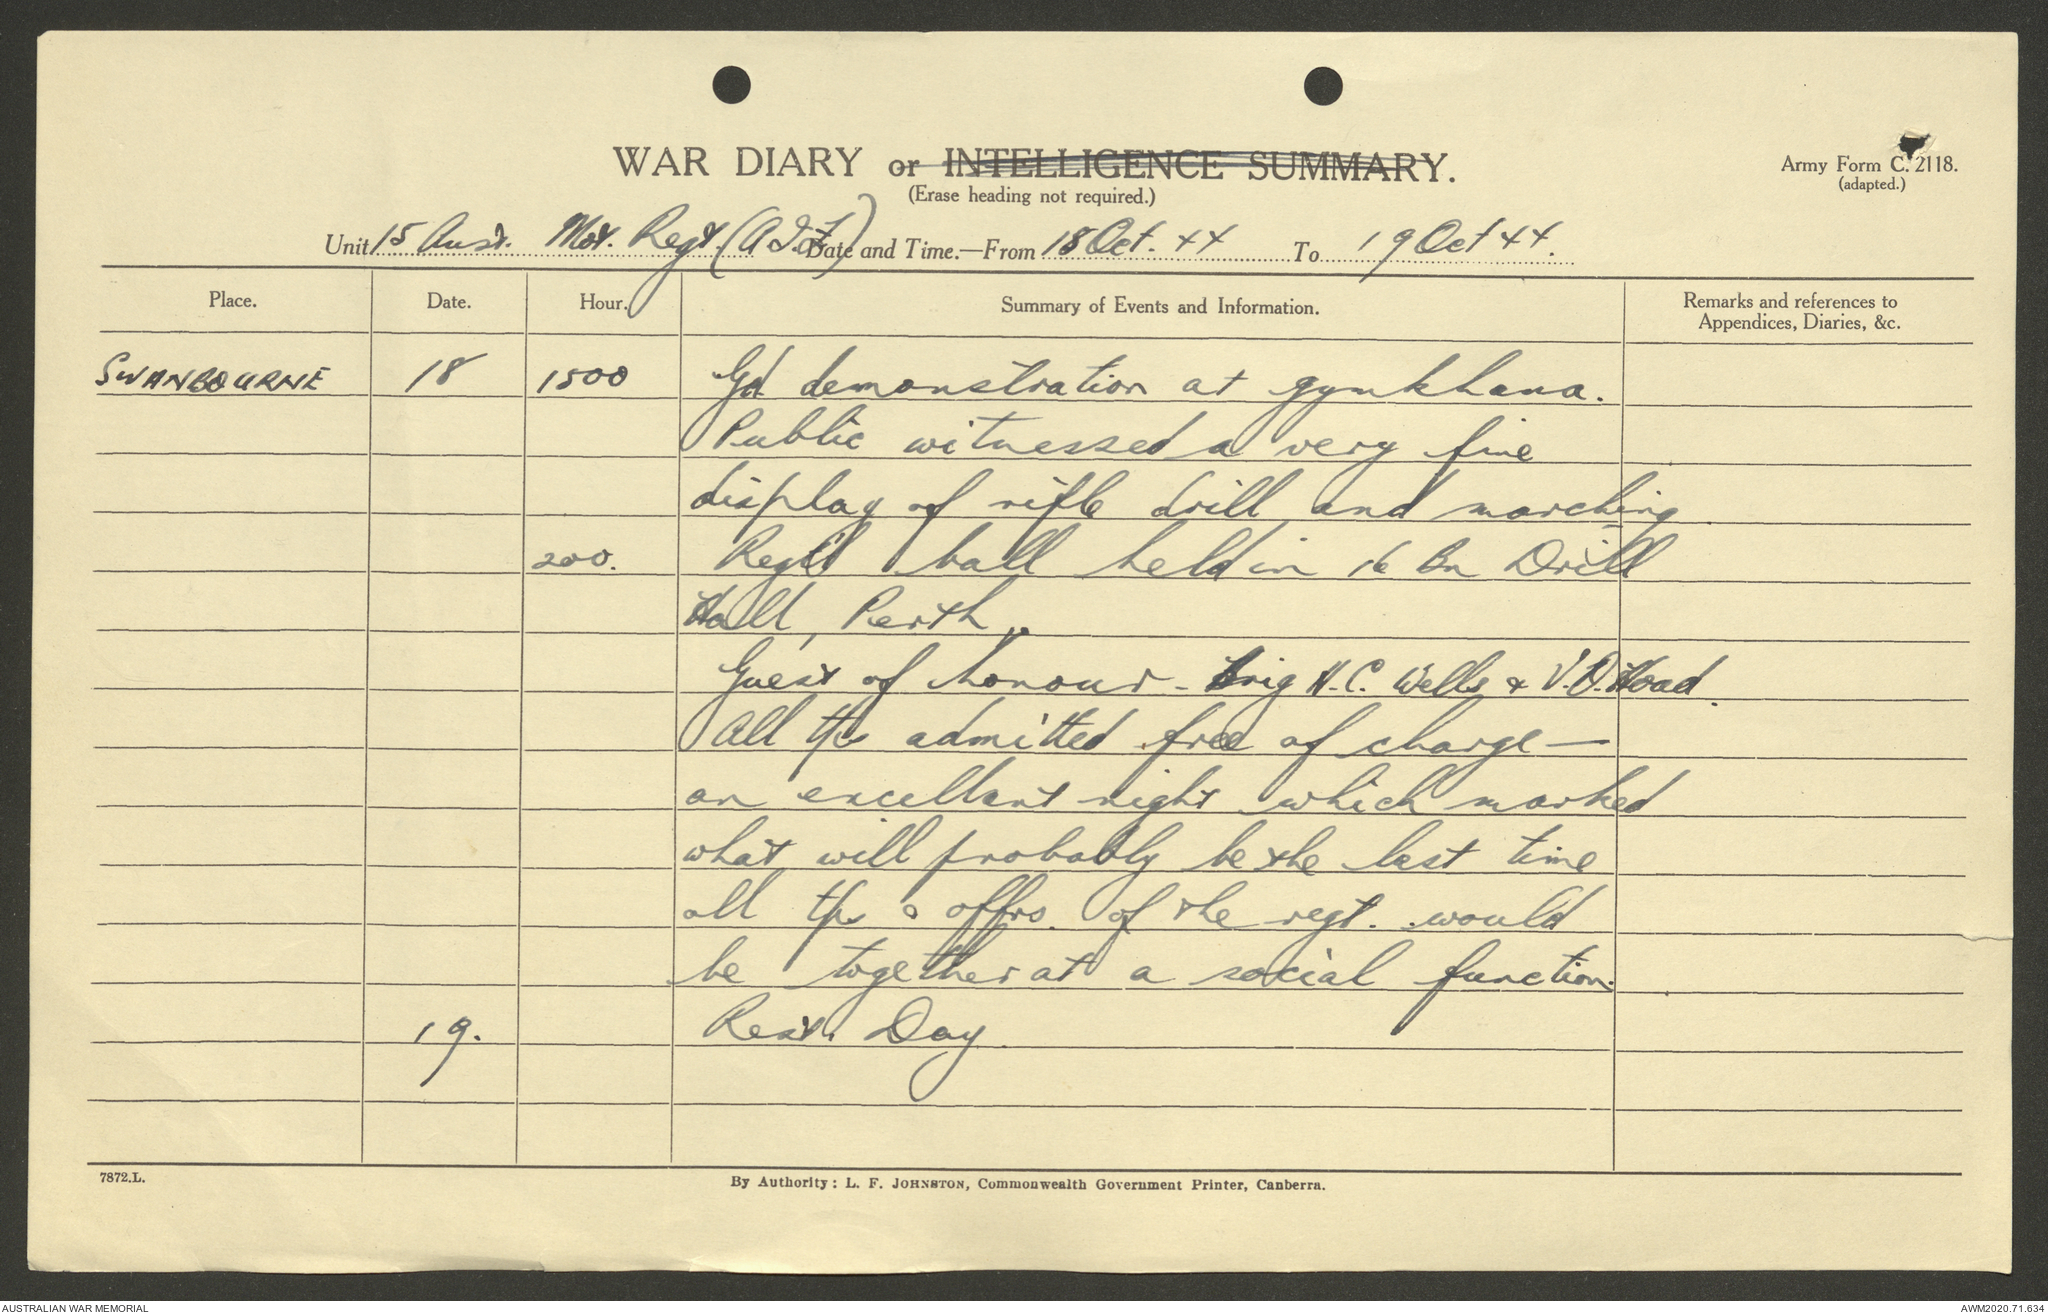 WAR DIARY or INTELLIGENCE SUMMARY.
(Erase heading not required.)
Army Form C. 2118.
(adapted.)
Unit 15 Aust. Mot. Regt. (A.I.F.) Date and Time.—From 18 Oct. 44 To 19 Oct 44.
Place. Date. Hour. Summary of Events and Information. Remarks and references to
Appendices, Diaries, &c.
SWANBOURNE 18 1500 Gd demonstration at gymkhana.
Public witnessed a very fine
display of rifle drill and marching.
200. Regt'l ball held in 16 Bn Drill
Hall, Perth.
Guest of honour - Brig H.C. Wells & V.O. Hoad.
All tps admitted free of charge —
an excellent night which marked
what will probably be the last time
all tps & offrs. of the regt. would
be together at a social function.
19. Rest. Day.
7872.L.
By Authority: L. F. JOHNSTON, Commonwealth Government Printer, Canberra.
AUSTRALIAN WAR MEMORIAL
AWM2020.71.634